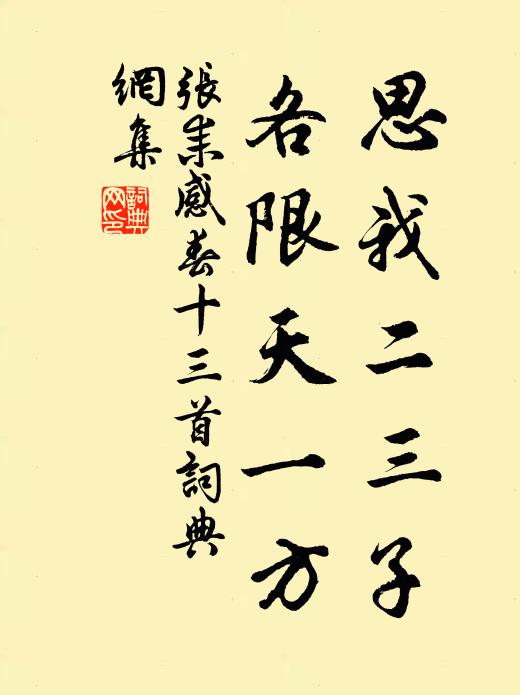 思我二三子
各限天一方
張耒感春十三首詞典
網集
詞典
网印